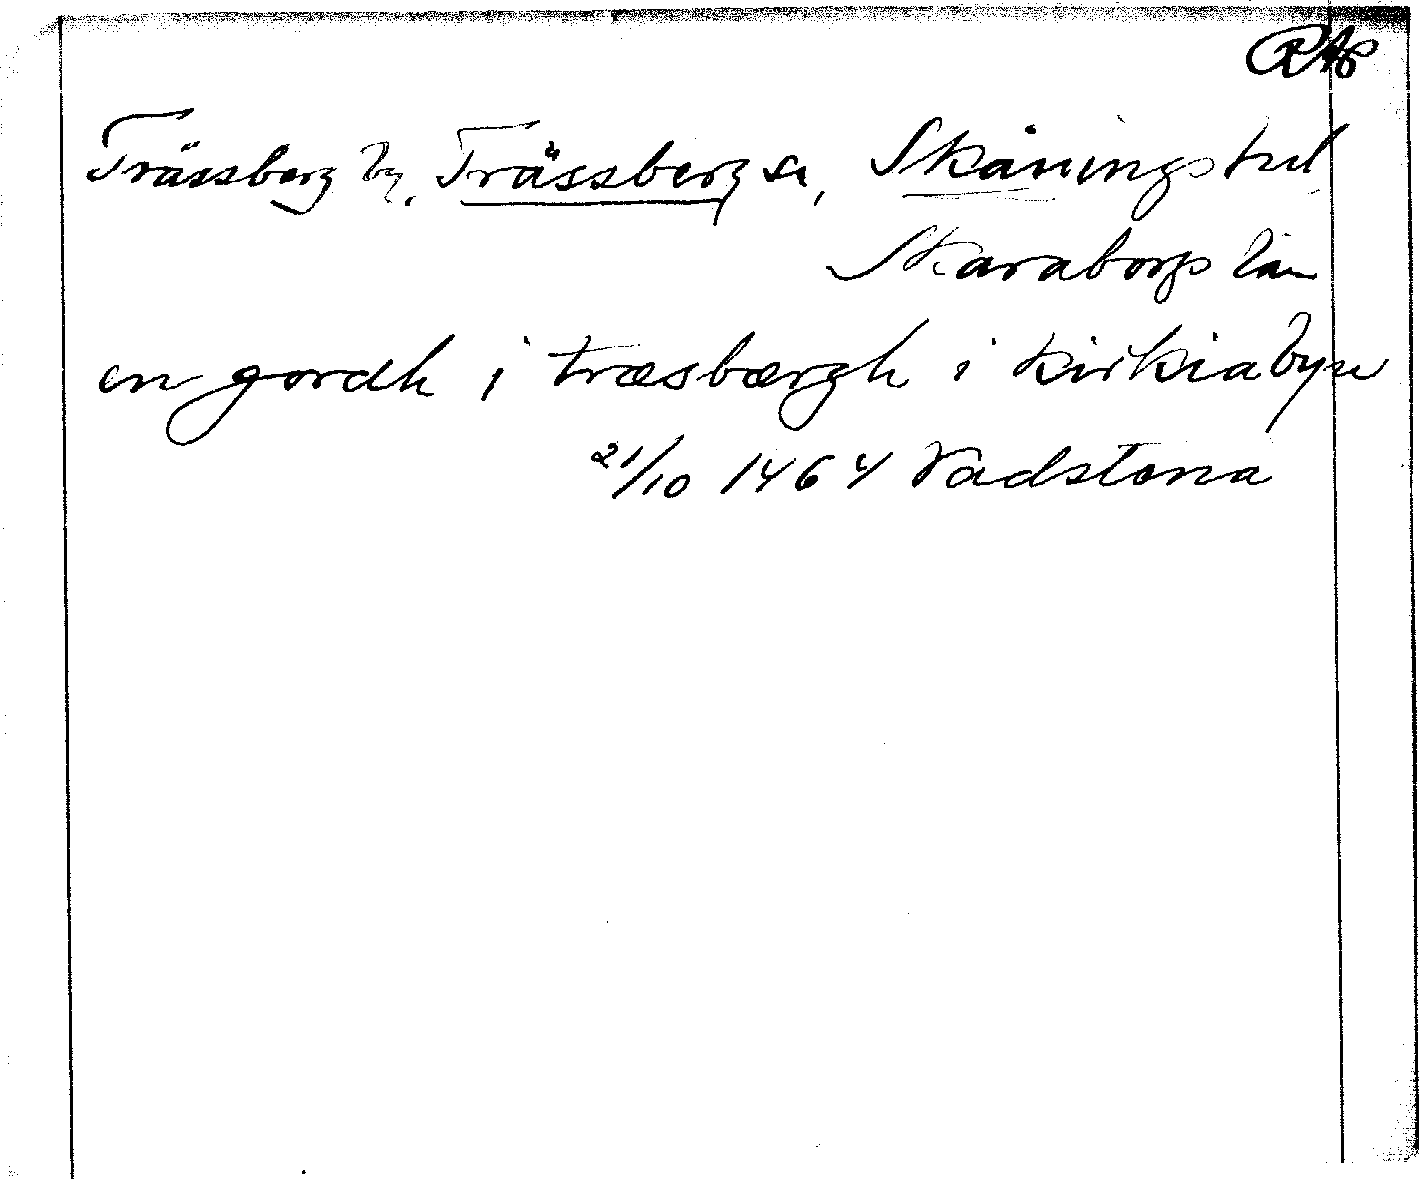 RAP
Trässberg by, Trässberg sn, Skånings hd
Skaraborgs län
en gordh i træsbærgh i kirkiabyn
21/10 1464 Vadstena